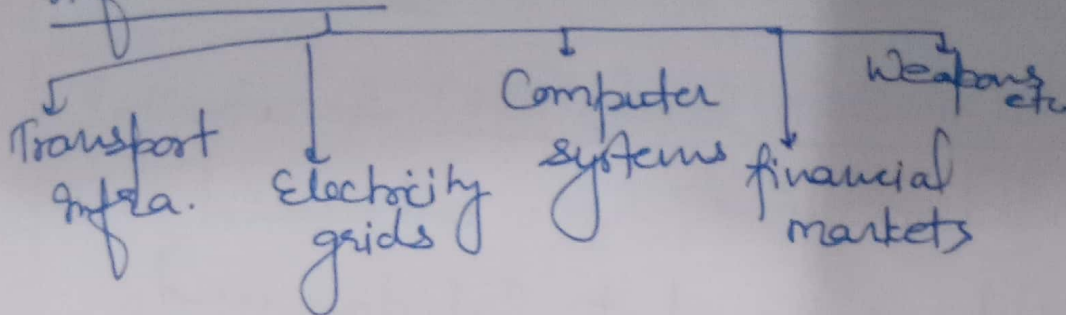 Transport
Infra.
Electricity
grids
Computer
systems
financial
markets
Weapons
etc